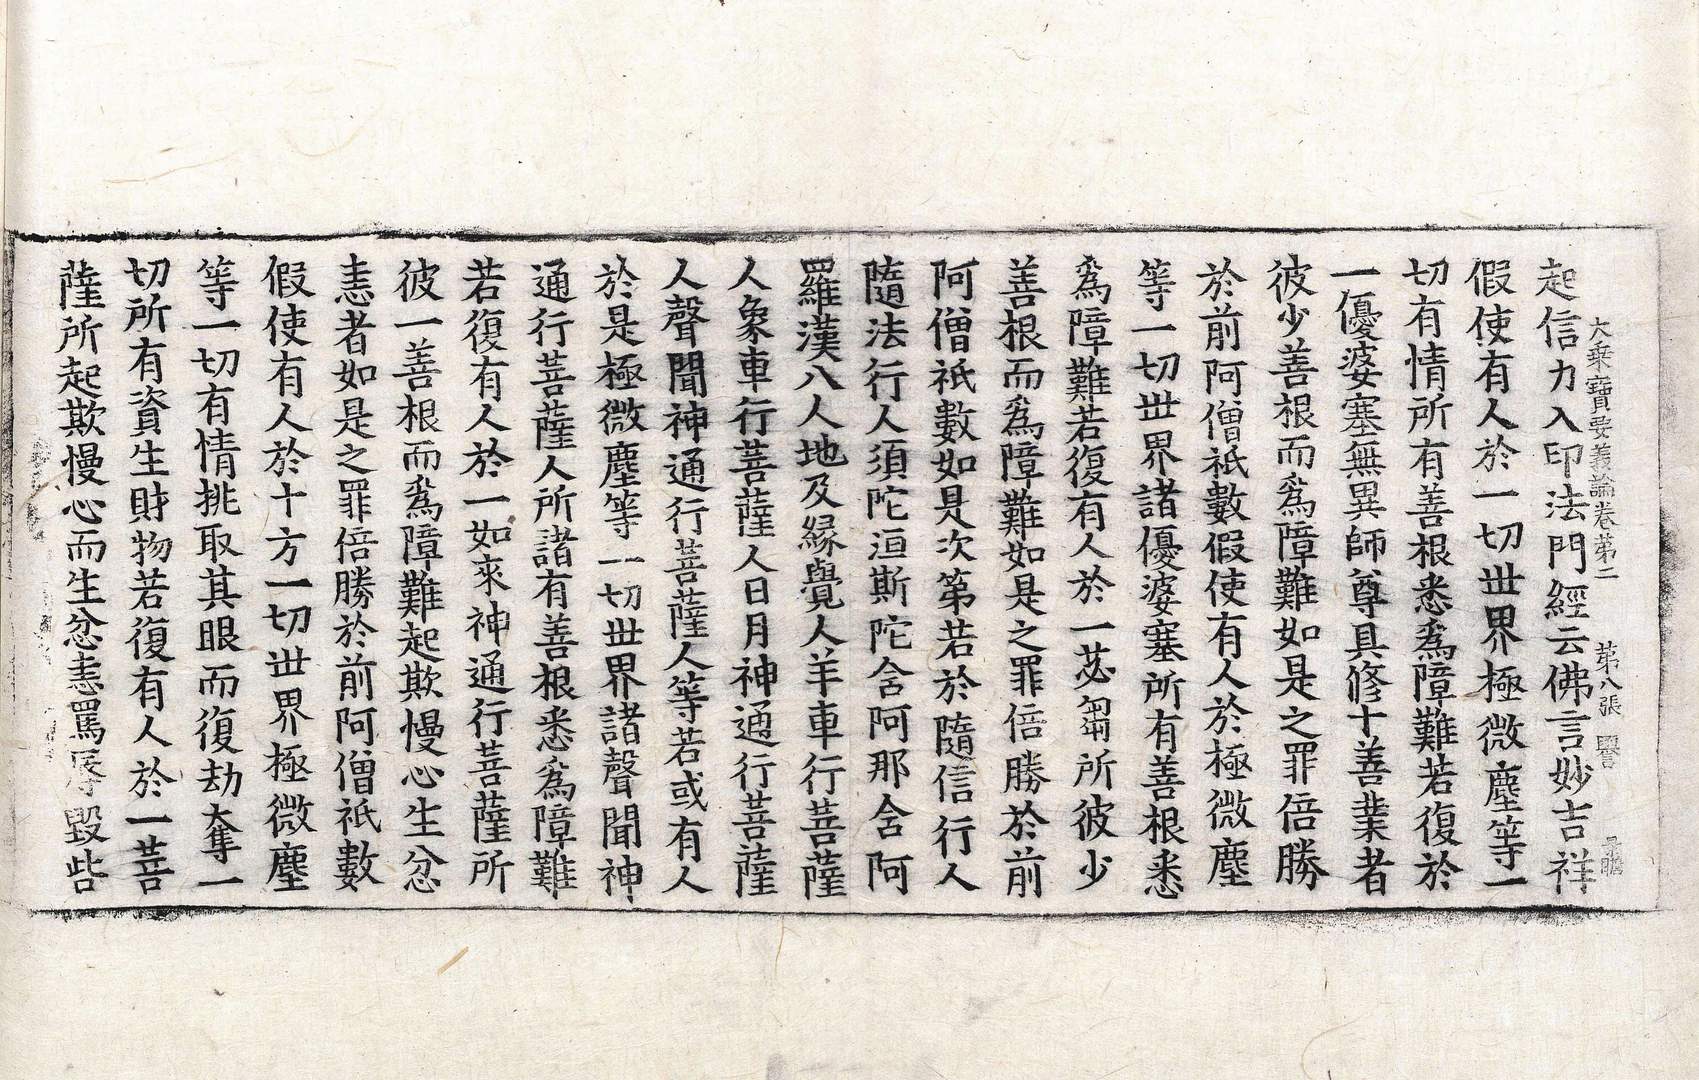 大乘寶要義論卷第二　第八張　壆
起信力入印法門經云佛言妙吉祥
假使有人於一切世界極微塵等一
切有情所有善根悉爲障難若復於
一優婆塞無異師尊具修十善業者
彼少善根而爲障難如是之罪倍勝
於前阿僧祇數假使有人於極微塵
等一切世界諸優婆塞所有善根悉
爲障難若復有人於一苾芻所彼少
善根而爲障難如是之罪倍勝於前
阿僧祇數如是次第若於隨信行人
隨法行人須陀洹斯陀含阿那含阿
羅漢八人地及緣覺人羊車行菩薩
人象車行菩薩人日月神通行菩薩
人聲聞神通行菩薩人等若或有人
於是極微塵等一切世界諸聲聞神
通行菩薩人所諸有善根悉爲障難
若復有人於一如來神通行菩薩所
彼一善根而爲障難起欺慢心生忿
恚者如是之罪倍勝於前阿僧祇數
假使有人於十方一切世界極微塵
等一切有情挑取其眼而復劫奪一
切所有資生財物若復有人於一菩
薩所起欺慢心而生忿恚罵辱毀呰